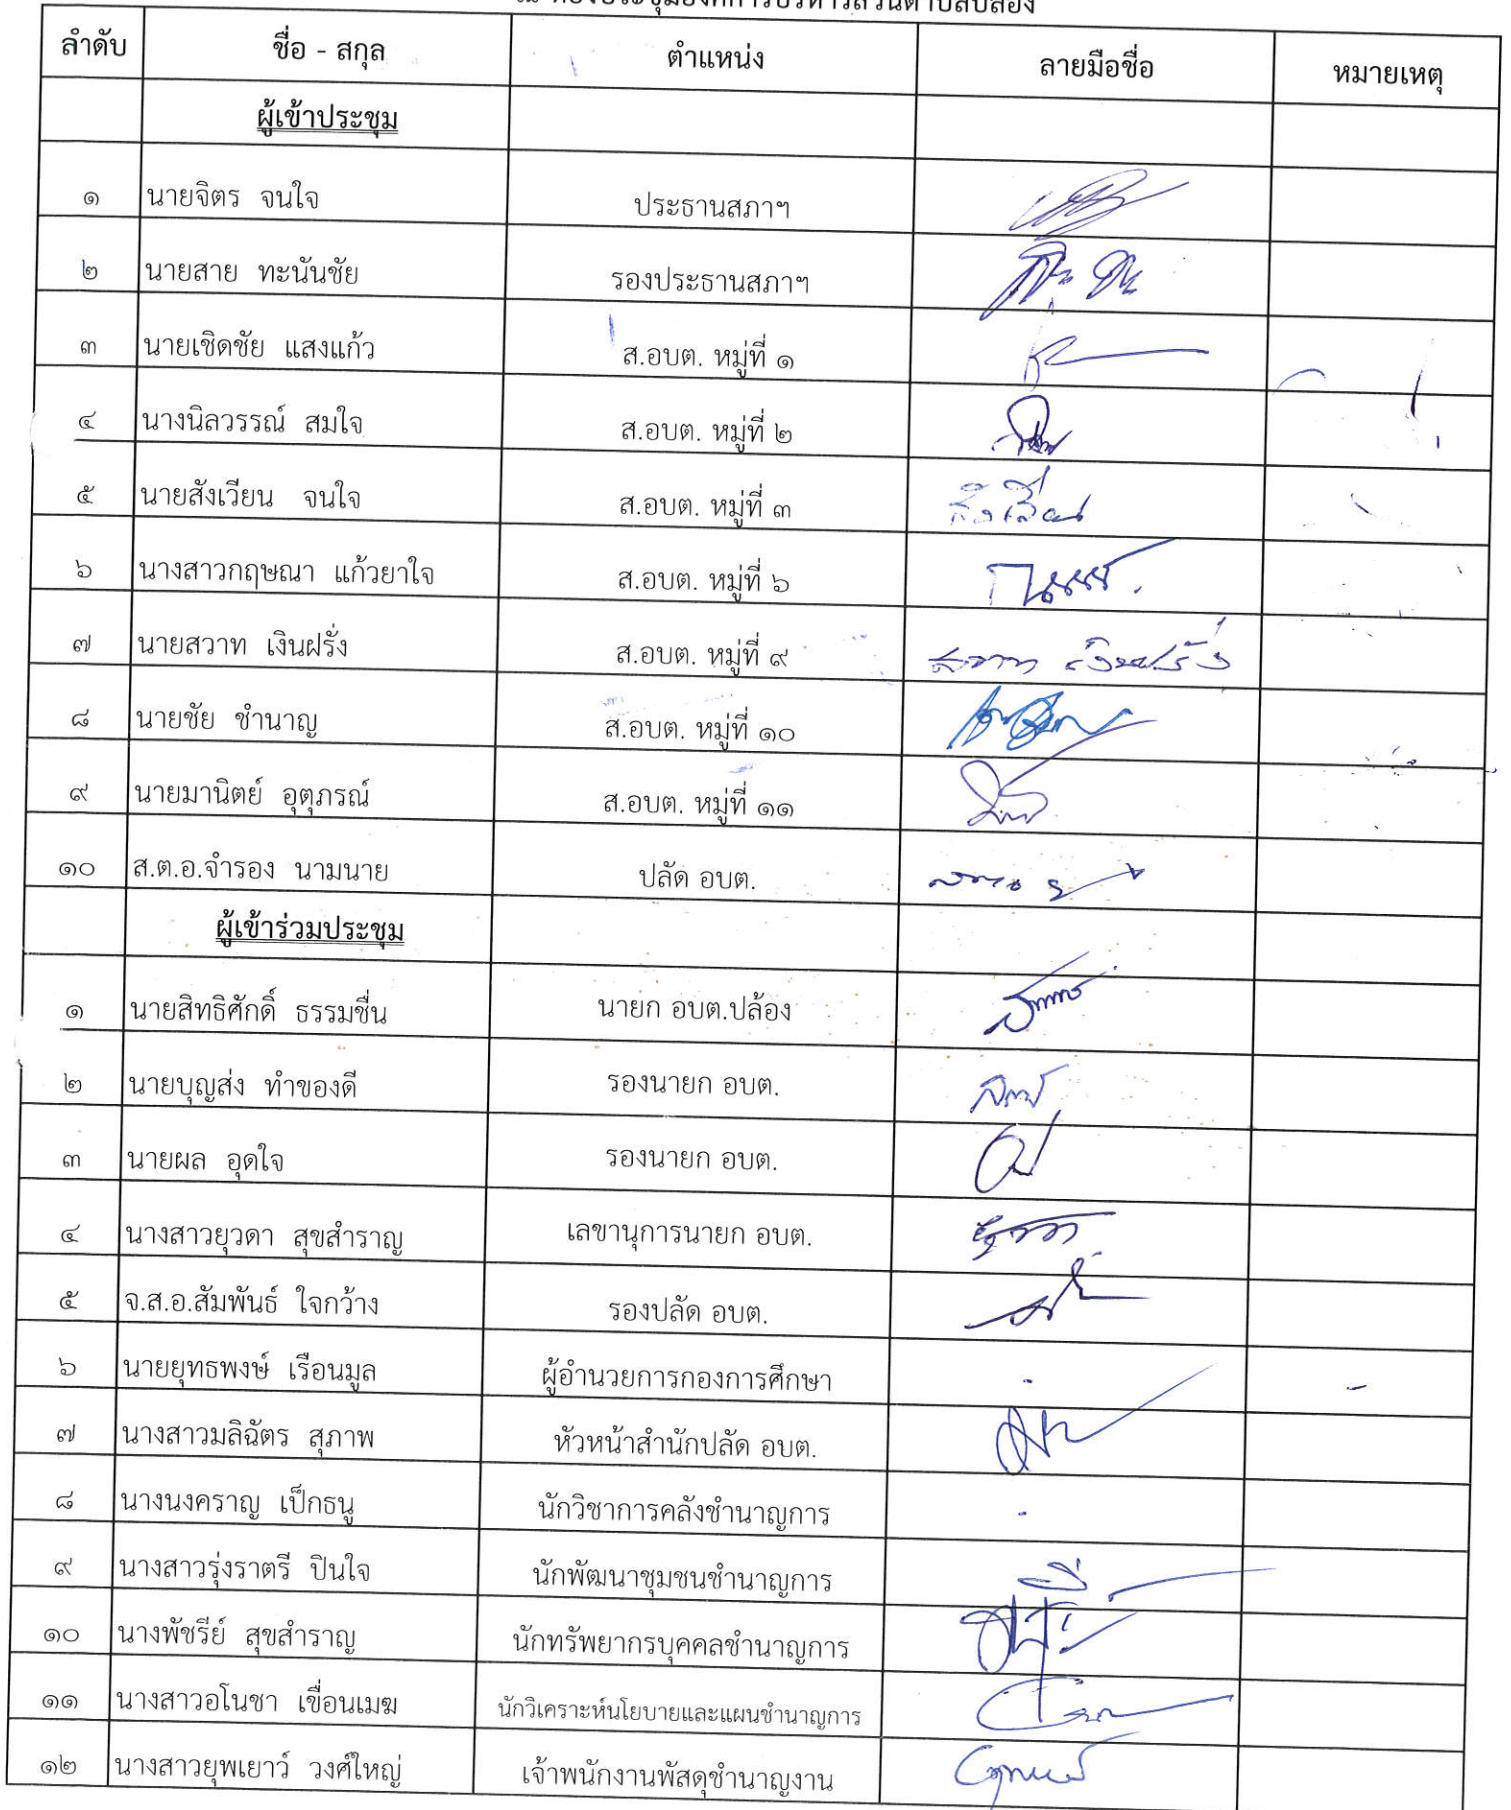 ลำดับ ชื่อ - สกุล ตำแหน่ง ลายมือชื่อ หมายเหตุ
ผู้เข้าประชุม
๑ นายจิตร จนใจ ประธานสภาฯ
๒ นายสาย ทะนันชัย รองประธานสภาฯ
๓ นายเชิดชัย แสงแก้ว ส.อบต. หมู่ที่ ๑
๔ นางนิลวรรณ์ สมใจ ส.อบต. หมู่ที่ ๒
๕ นายสังเวียน จนใจ ส.อบต. หมู่ที่ ๓ สังเวียน
๖ นางสาวกฤษณา แก้วยาใจ ส.อบต. หมู่ที่ ๖
๗ นายสวาท เงินฝรั่ง ส.อบต. หมู่ที่ ๙ สวาท เงินฝรั่ง
๘ นายชัย ชำนาญ ส.อบต. หมู่ที่ ๑๐
๙ นายมานิตย์ อุตุภรณ์ ส.อบต. หมู่ที่ ๑๑
๑๐ ส.ต.อ.จำรอง นามนาย ปลัด อบต.
ผู้เข้าร่วมประชุม
๑ นายสิทธิศักดิ์ ธรรมชื่น นายก อบต.ปล้อง
๒ นายบุญส่ง ทำของดี รองนายก อบต.
๓ นายผล อุดใจ รองนายก อบต.
๔ นางสาวยุวดา สุขสำราญ เลขานุการนายก อบต.
๕ จ.ส.อ.สัมพันธ์ ใจกว้าง รองปลัด อบต.
๖ นายยุทธพงษ์ เรือนมูล ผู้อำนวยการกองการศึกษา - -
๗ นางสาวมลิฉัตร สุภาพ หัวหน้าสำนักปลัด อบต.
๘ นางนงคราญ เป็กธนู นักวิชาการคลังชำนาญการ -
๙ นางสาวรุ่งราตรี ปินใจ นักพัฒนาชุมชนชำนาญการ
๑๐ นางพัชรีย์ สุขสำราญ นักทรัพยากรบุคคลชำนาญการ
๑๑ นางสาวอโนชา เขื่อนเมฆ นักวิเคราะห์นโยบายและแผนชำนาญการ
๑๒ นางสาวยุพเยาว์ วงศ์ใหญ่ เจ้าพนักงานพัสดุชำนาญงาน